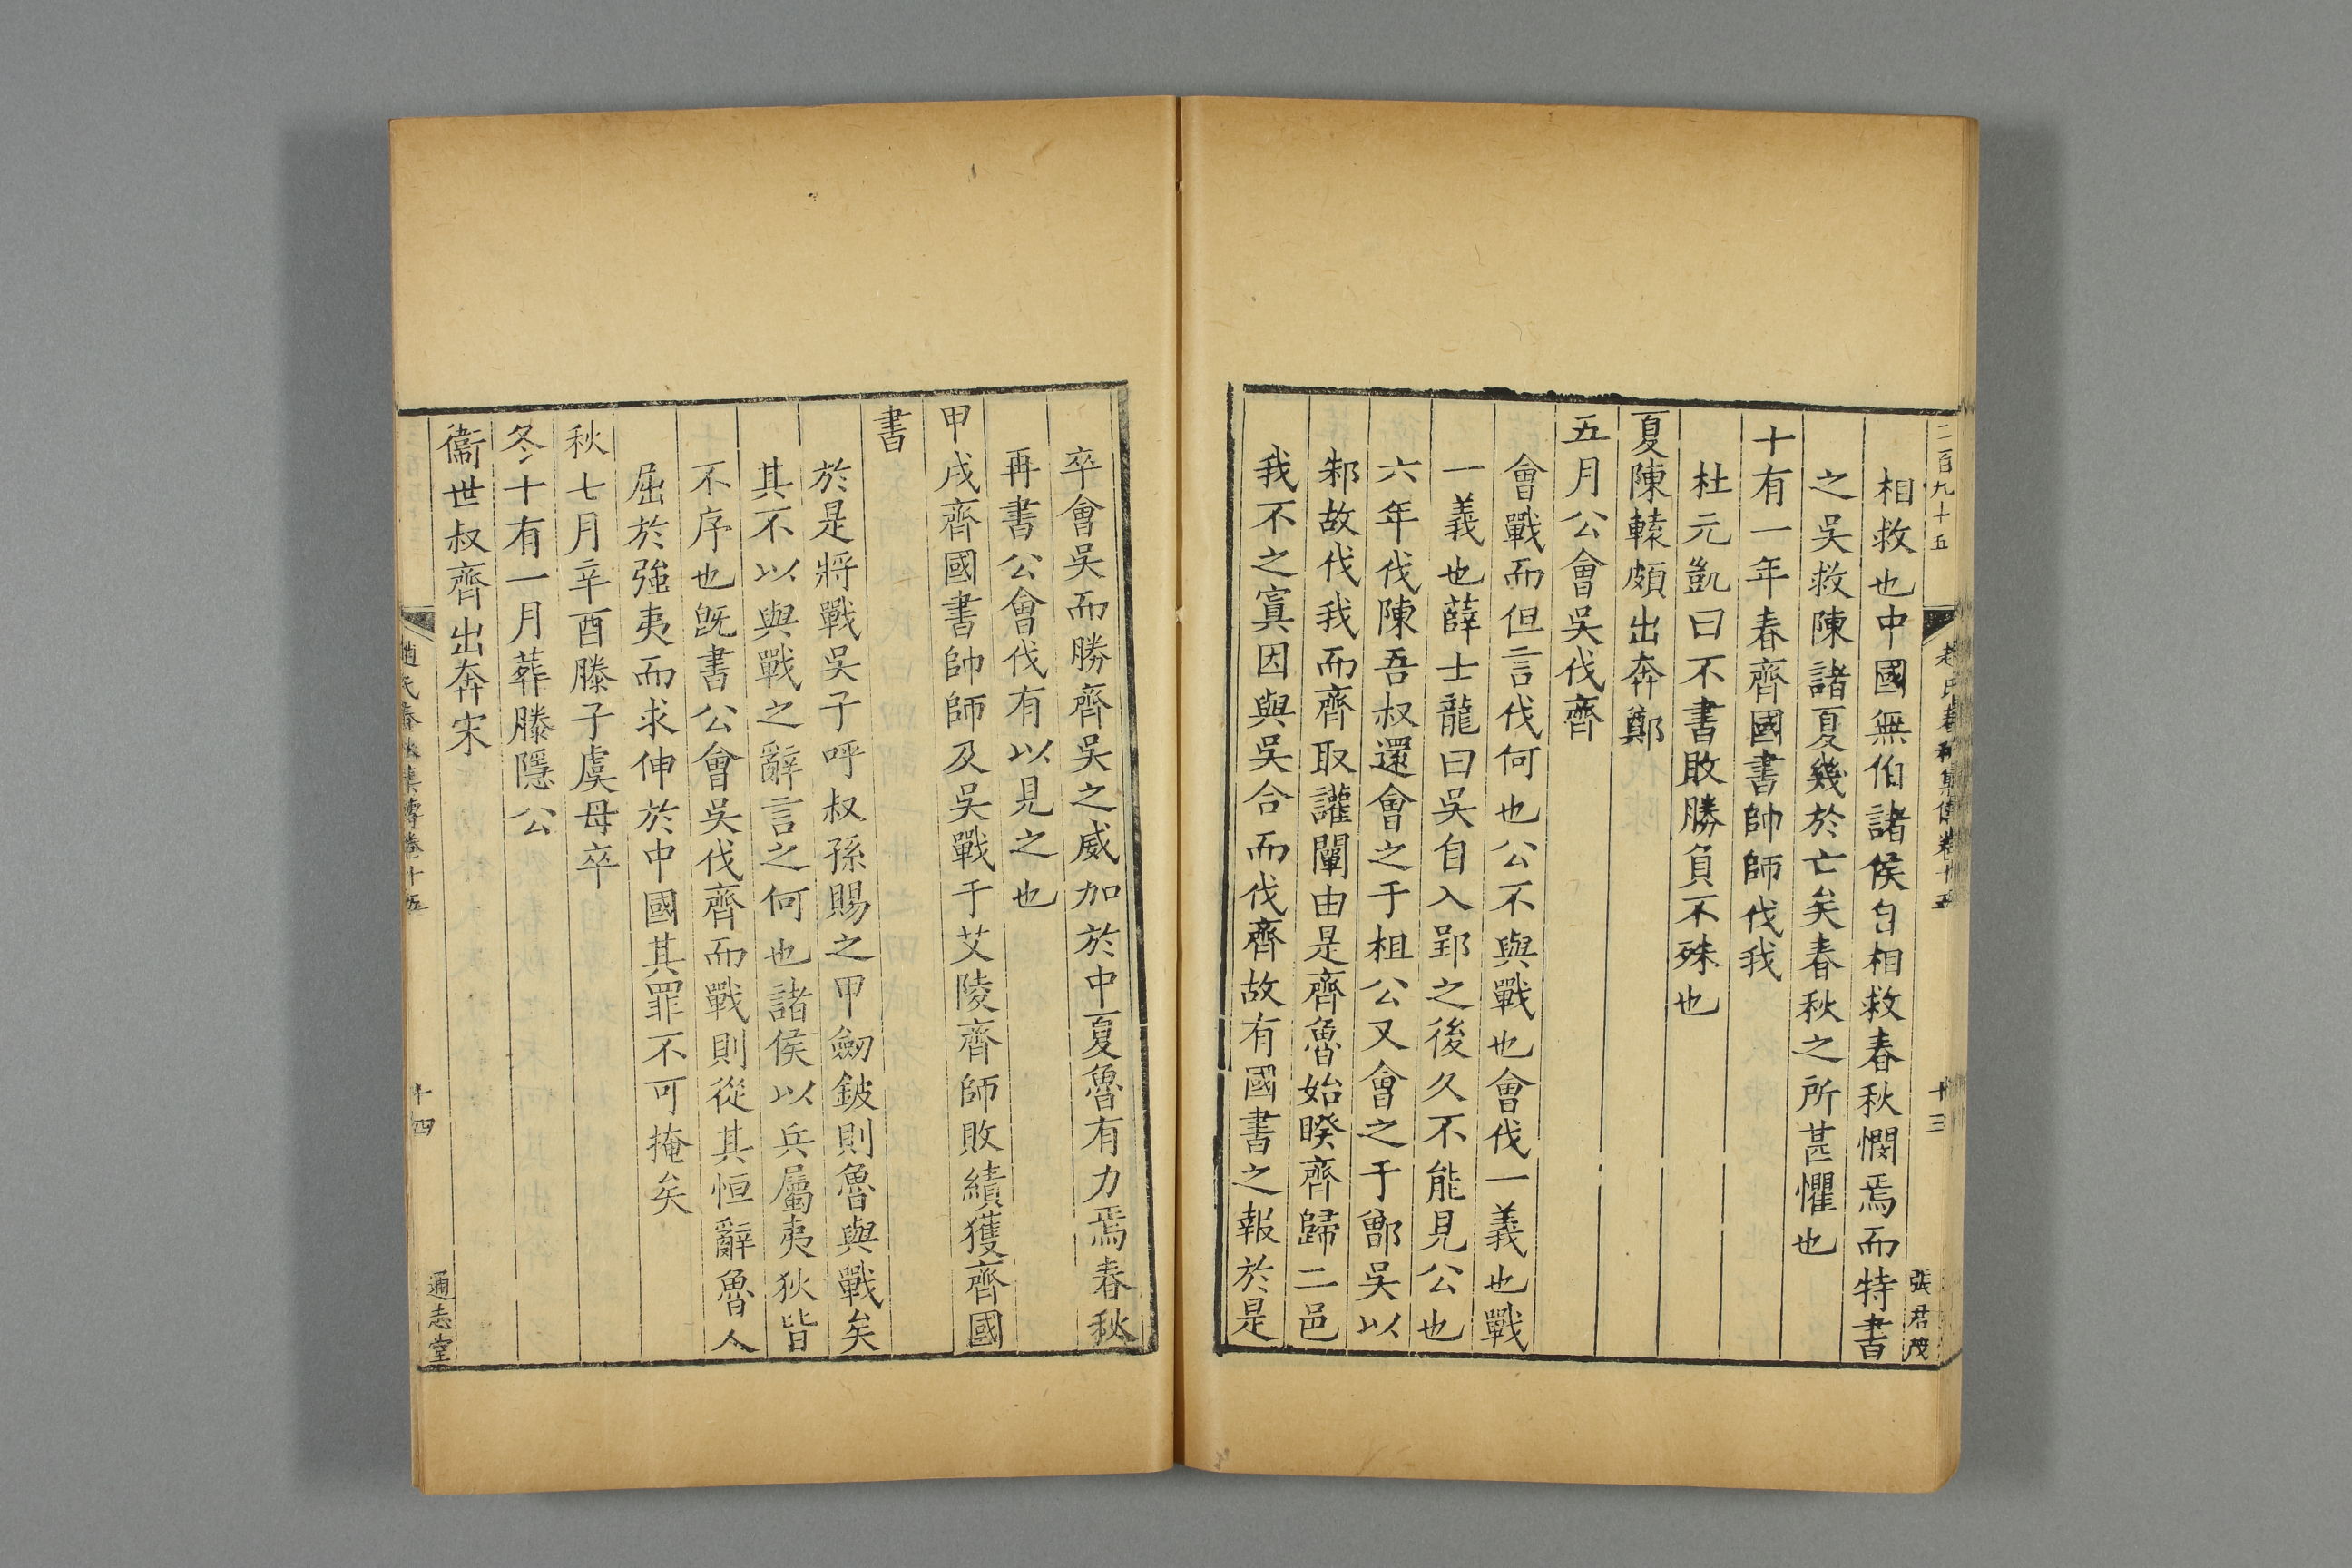 二百九十五
趙氏春秋集傳卷十五
十三
張君茂
相救也中國無伯諸侯自相救春秋憫焉而特書
之吳救陳諸夏幾於亡矣春秋之所甚懼也
十有一年春齊國書帥師伐我
杜元凱曰不書敗勝負不殊也
夏陳轅頗出奔鄭
五月公會吳伐齊
會戰而但言伐何也公不與戰也會伐一義也戰
一義也薛士龍曰吳自入郢之後久不能見公也
六年伐陳吾叔還會之于柤公又會之于鄫吳以
邾故伐我而齊取讙闡由是齊魯始睽齊歸二邑
我不之寘因與吳合而伐齊故有國書之報於是
卒會吳而勝齊吳之威加於中夏魯有力焉春秋
再書公會伐有以見之也
甲戌齊國書帥師及吳戰于艾陵齊師敗績獲齊國
書
於是將戰吳子呼叔孫賜之甲劒鈹則魯與戰矣
其不以與戰之辭言之何也諸侯以兵屬夷狄皆
不序也旣書公會吳伐齊而戰則從其恒辭魯人
屈於強夷而求伸於中國其罪不可掩矣
秋七月辛酉滕子虞母卒
冬十有一月葬滕隱公
衞世叔齊出奔宋
趙氏春秋集傳卷十五
十四
通志堂